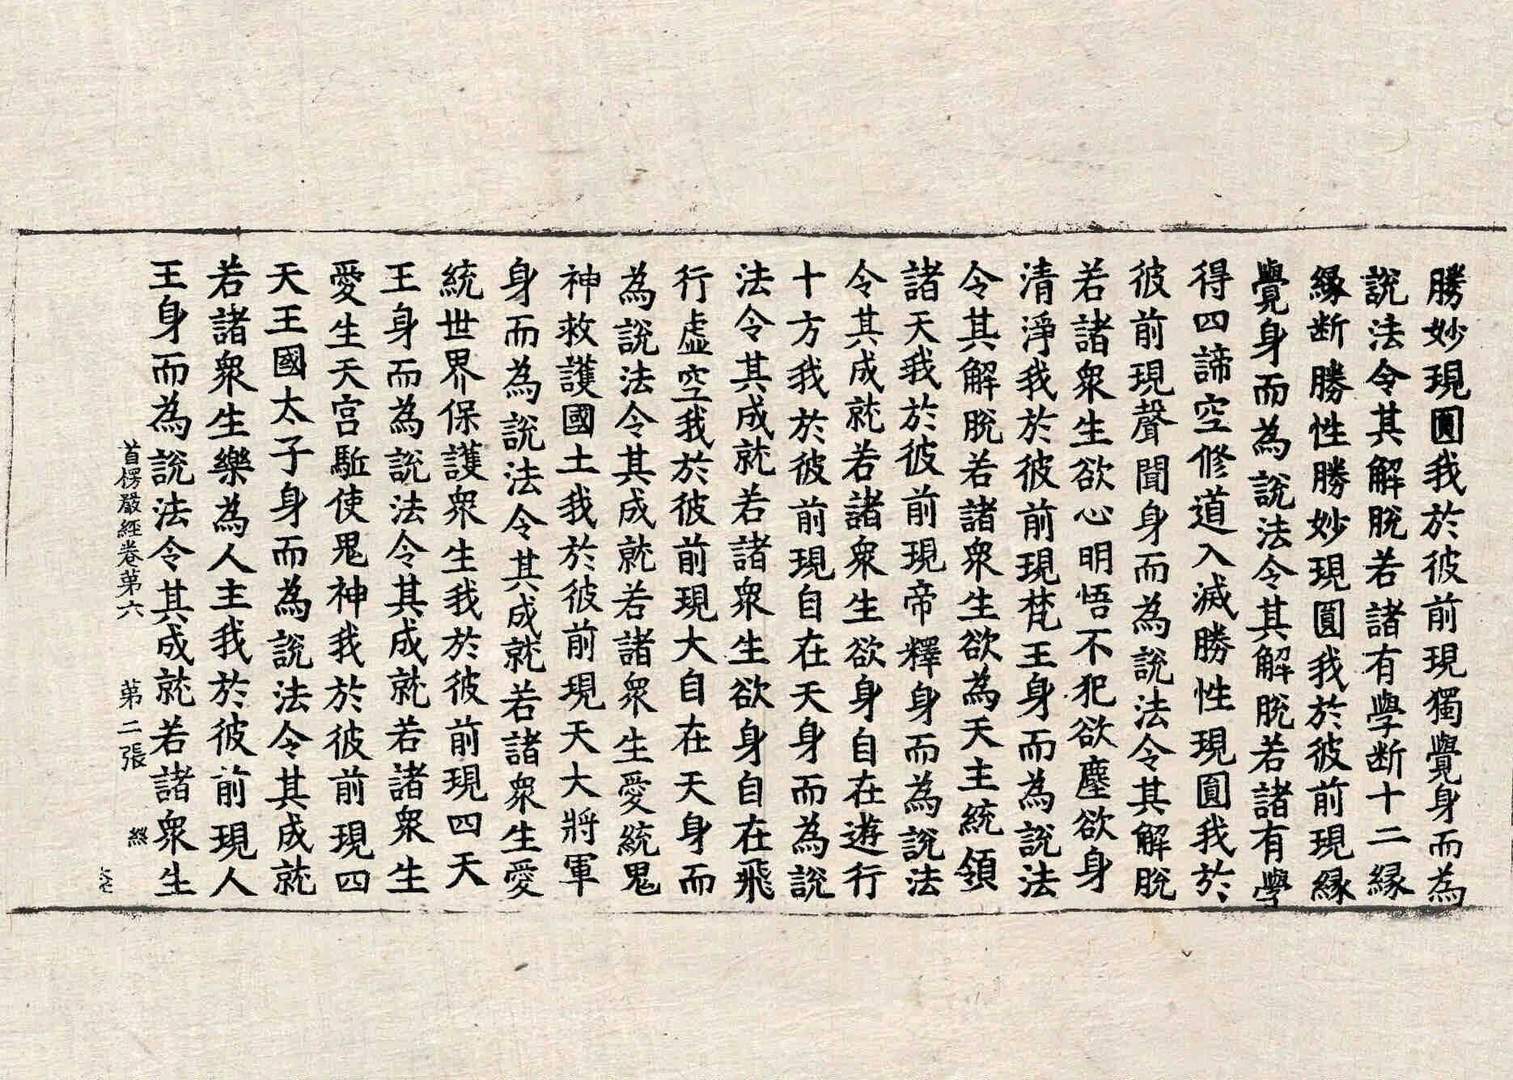 勝妙現圓我於彼前現獨覺身而為
說法令其解脫若諸有學断十二縁
縁断勝性勝妙現圓我於彼前現縁
覺身而為說法令其解脫若諸有學
得四諦空修道入滅勝性現圓我於
彼前現聲聞身而為說法令其解脫
若諸衆生欲心明悟不犯欲塵欲身
清淨我於彼前現梵王身而為說法
令其解脫若諸衆生欲為天主統領
諸天我於彼前現帝釋身而為說法
令其成就若諸衆生欲身自在遊行
十方我於彼前現自在天身而為說
法令其成就若諸衆生欲身自在飛
行虛空我於彼前現大自在天身而
為說法令其成就若諸衆生愛統鬼
神救護國土我於彼前現天大將軍
身而為說法令其成就若諸衆生愛
統世界保護衆生我於彼前現四天
王身而為說法令其成就若諸衆生
愛生天宮駈使鬼神我於彼前現四
天王國太子身而為說法令其成就
若諸衆生樂為人主我於彼前現人
王身而為說法令其成就若諸衆生
首楞嚴經卷第六 第二張